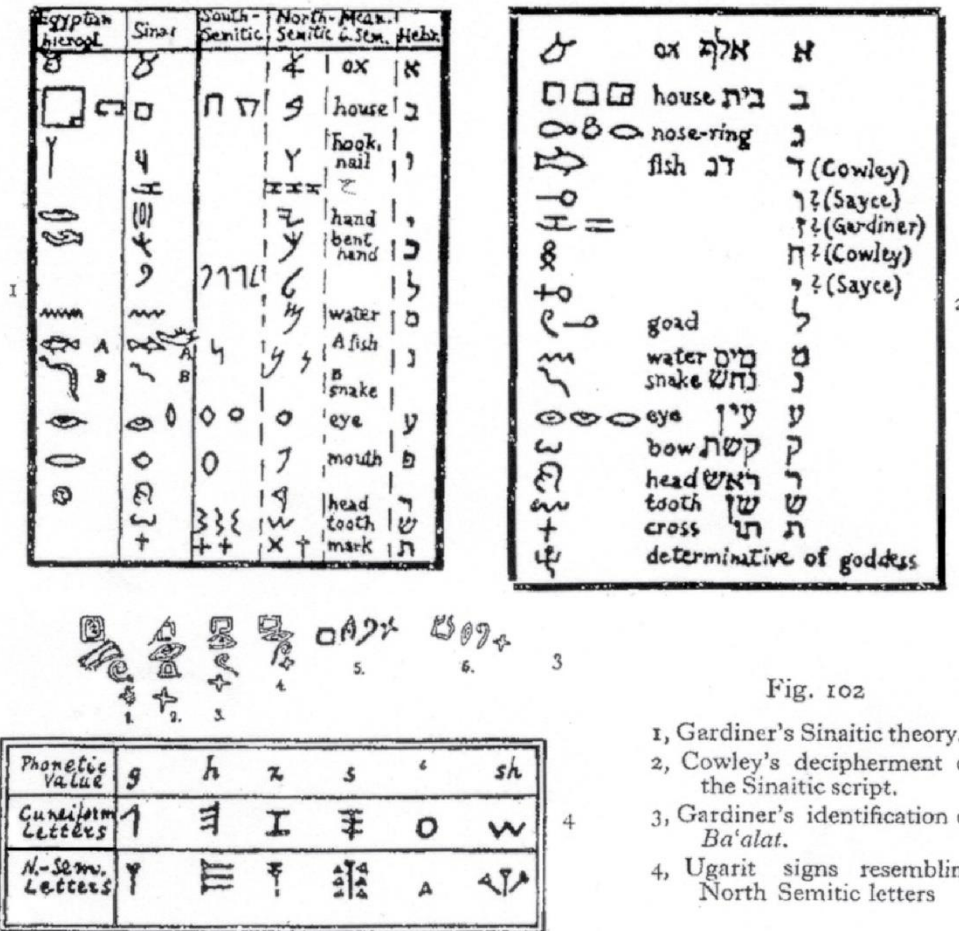 Egyptian hierogl. Sinai South-Semitic North-Semitic Mean. i. Sem. Hebr.
ox א
house ב
hook, nail ו
ז
hand י
bent hand כ
ל
water מ
A B A B A fish B snake נ
eye ע
mouth פ
head ר
tooth ש
mark ת
1
ox אלף א
house בית ב
nose-ring ג
fish דג ד (Cowley)
ו ? (Sayce)
ז ? (Gardiner)
ח ? (Cowley)
י ? (Sayce)
goad ל
water מים מ
snake נחש נ
eye עין ע
bow קשת ק
head ראש ר
tooth שן ש
cross תו ת
determinative of goddess
2
1. 2. 3. 4. 5. 6.
3
Phonetic value g h z s ʿ sh
Cuneiform Letters
N.-Sem. Letters
4
Fig. 102
1, Gardiner's Sinaitic theory.
2, Cowley's decipherment o
the Sinaitic script.
3, Gardiner's identification o
Baʿalat.
4, Ugarit signs resemblin
North Semitic letters